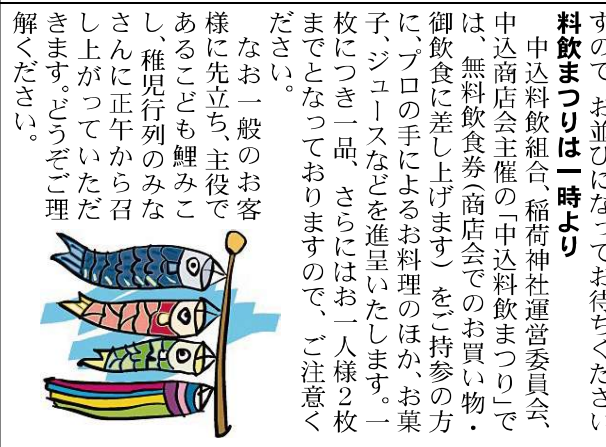 すので、お並びになってお待ちください
料飲まつりは一時より
中込料飲組合、稲荷神社運営委員会、
中込商店会主催の「中込料飲まつり」で
は、無料飲食券(商店会でのお買い物・
御飲食に差し上げます)をご持参の方
に、プロの手によるお料理のほか、お菓
子、ジュースなどを進呈いたします。一
枚につき一品、さらにはお一人様2枚
までとなっておりますので、ご注意く
ださい。
なお一般のお客
様に先立ち、主役で
あるこども鯉みこ
し、稚児行列のみな
さんに正午から召
し上がっていただ
きます。どうぞご理
解ください。